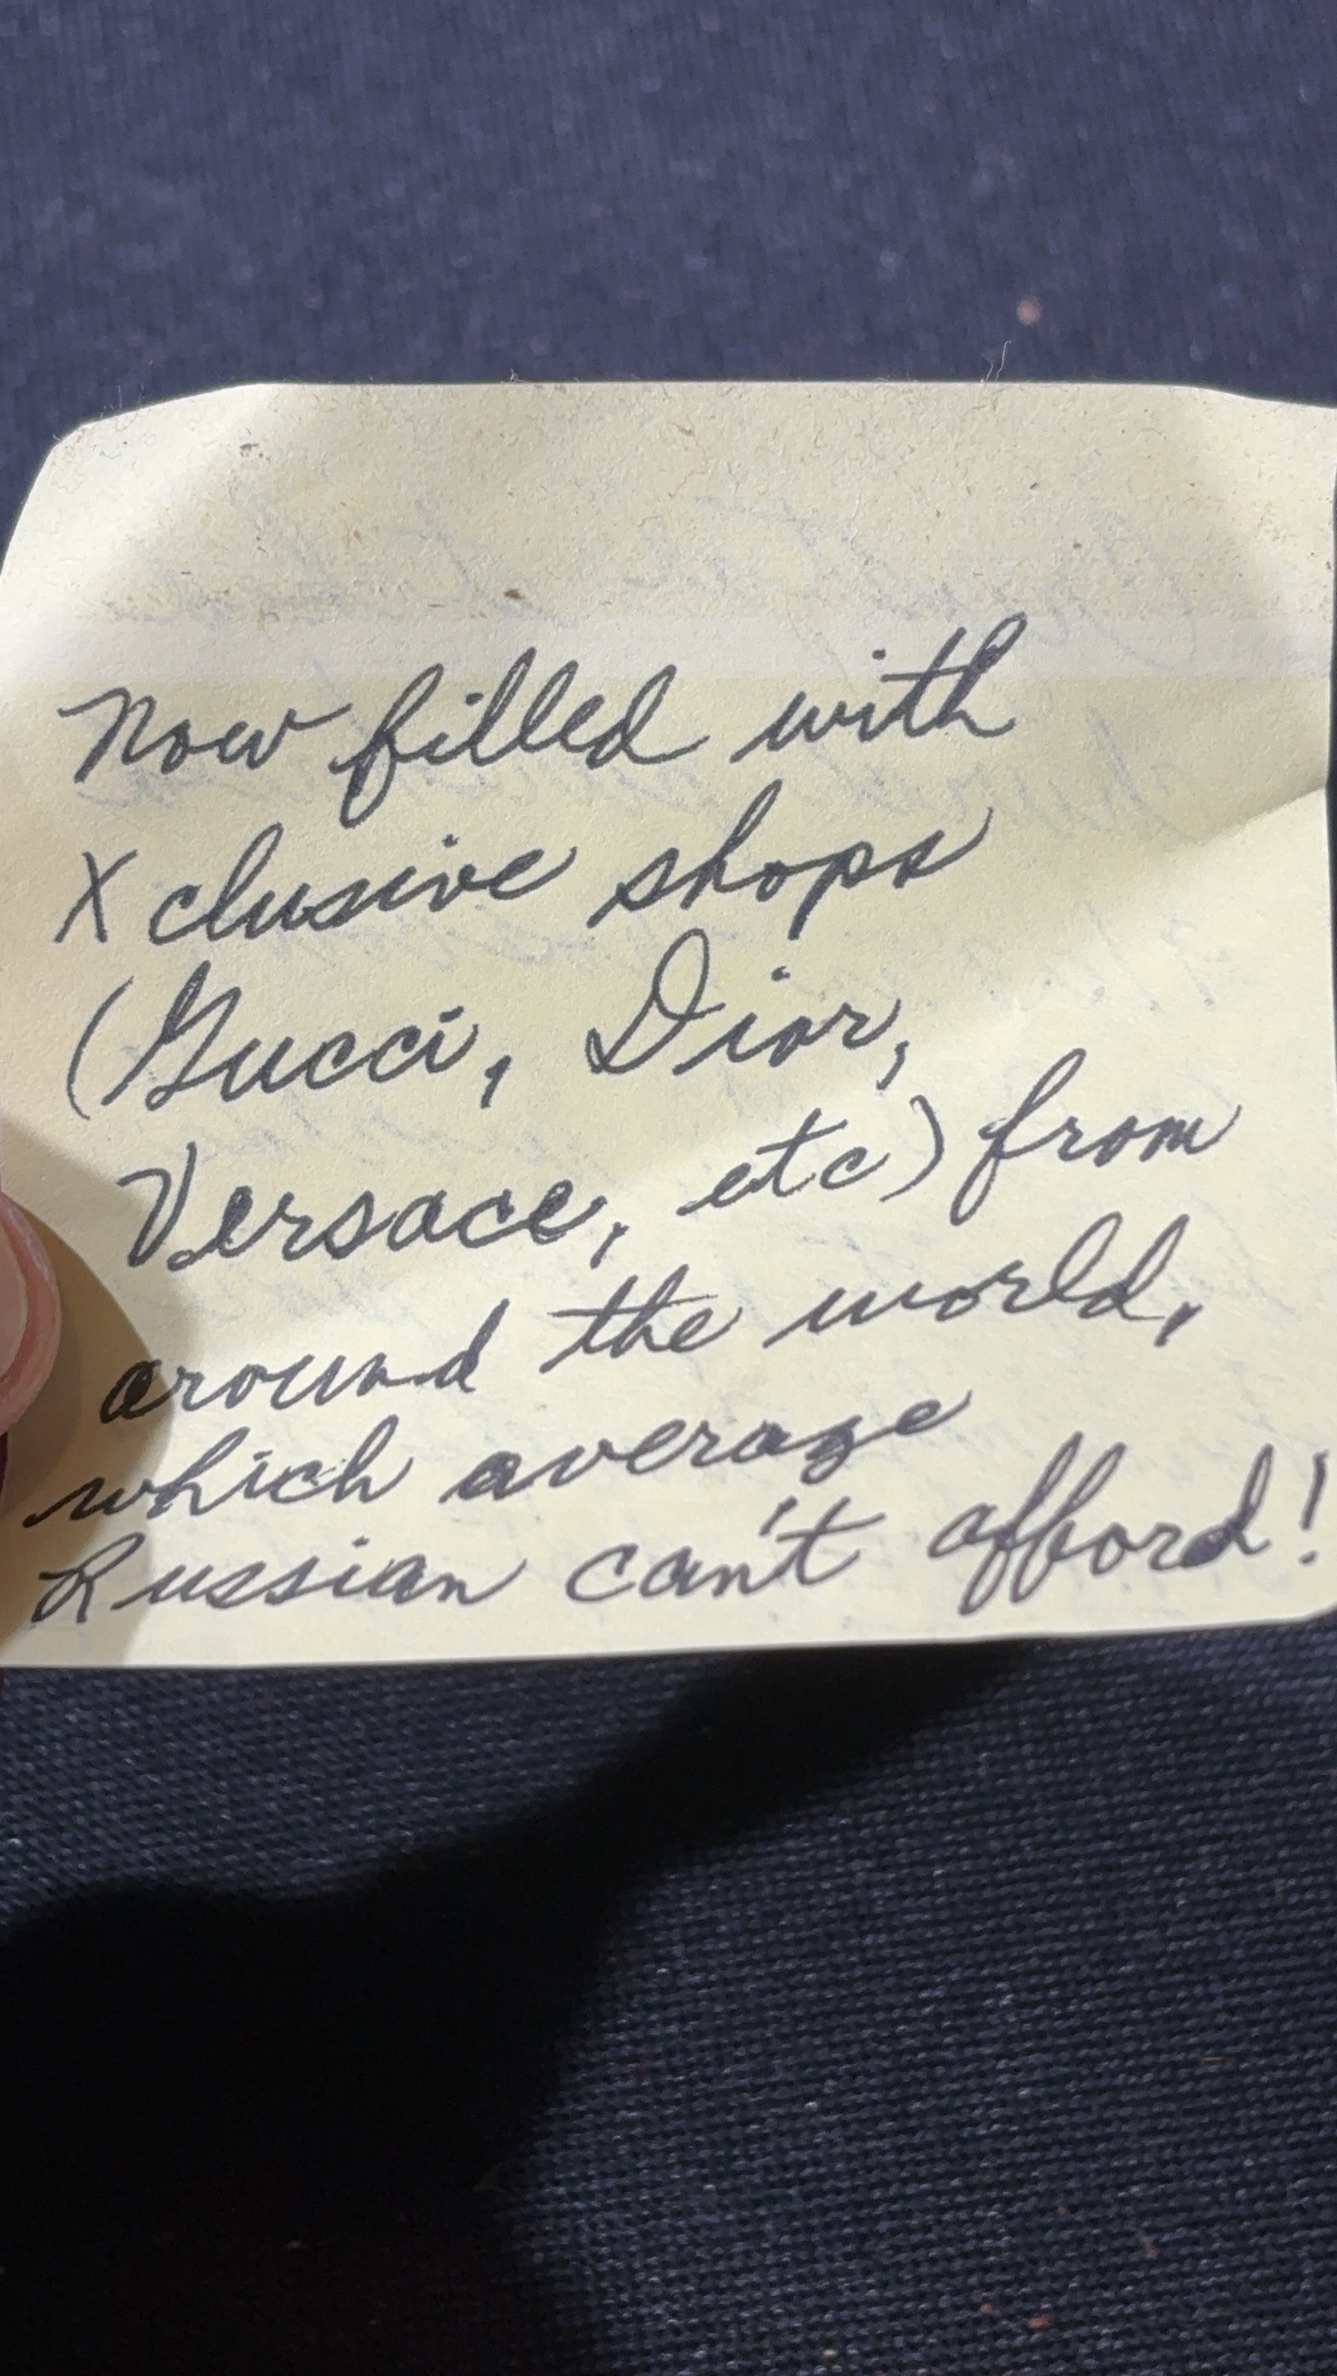 Now filled with
Xclusive shops
(Gucci, Dior,
Versace, etc) from
around the world,
which average
Russian can't afford!